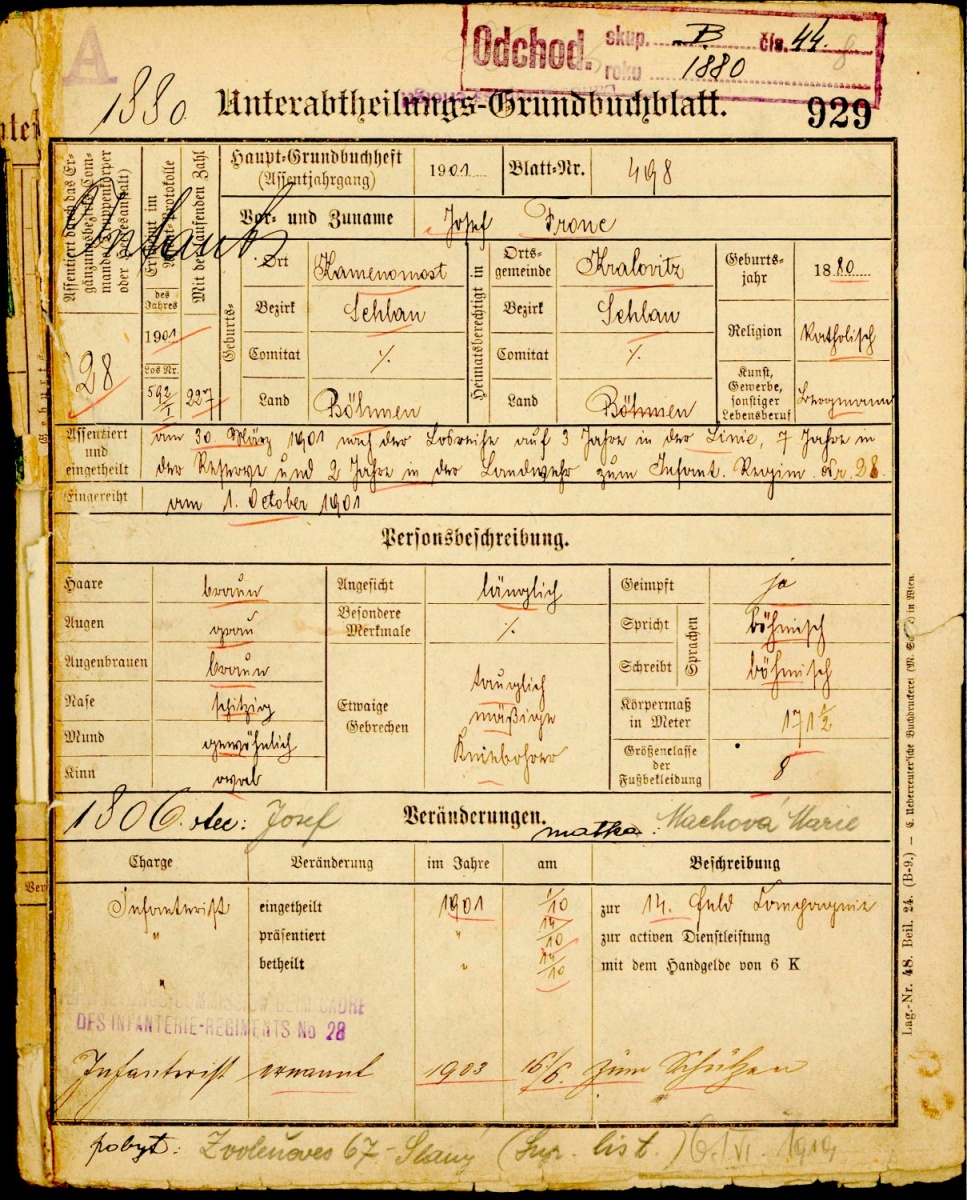 A
Odchod. skup. B čís. 44.
roku 1880
1880. Unterabtheilungs-Grundbuchblatt. 929
Assentiert durch das Ergänzungsbezirks-Commando (Truppenkörper oder Heeresanstalt)
28
des Jahres
1901
Los Nr.
592/I
Mit der laufenden Zahl
227
Haupt-Grundbuchheft (Assentjahrgang) 1901 Blatt-Nr. 498
Vor- und Zuname Josef Fronc
Geburts-
Ort Kamenomost
Bezirk Schlan
Comitat ⁒
Land Böhmen
Heimatsberechtigt in
Ortsgemeinde Kralovitz
Bezirk Schlan
Comitat ⁒
Land Böhmen
Geburtsjahr 1880
Religion katholisch
Kunst, Gewerbe, sonstiger Lebensberuf Bergmann
Assentiert und eingetheilt
am 30. März 1901 nach der Losreihe auf 3 Jahre in der Linie, 7 Jahre in
der Reserve und 2 Jahre in der Landwehr zum Infant. Regim. Nr. 28.
Eingereiht am 1. October 1901
Personsbeschreibung.
Haare braun
Augen grau
Augenbrauen braun
Nase spitzig
Mund gewöhnlich
Kinn oval
Angesicht länglich
Besondere Merkmale ⁒
Etwaige Gebrechen
tauglich
mäßige
Kniebohrer
Geimpft ja
Sprachen
Spricht böhmisch
Schreibt böhmisch
Körpermaß in Meter 171½
Größenclasse der Fußbekleidung 8
Josef Veränderungen. matka: Machová Marie
Charge Veränderung im Jahre am Beschreibung
Infanterist eingetheilt 1901 1/10 zur 14. Feld Compagnie
" präsentiert " 14/10 zur activen Dienstleistung
" betheilt " 14/10 mit dem Handgelde von 6 K
DES INFANTERIE-REGIMENTS No 28
Infanterist ernannt 1903 16/6. zum Schützen
pobyt: Zvoleňoves 67 - Slaný
Lag.-Nr. 48. Beil. 24. (B-9.)